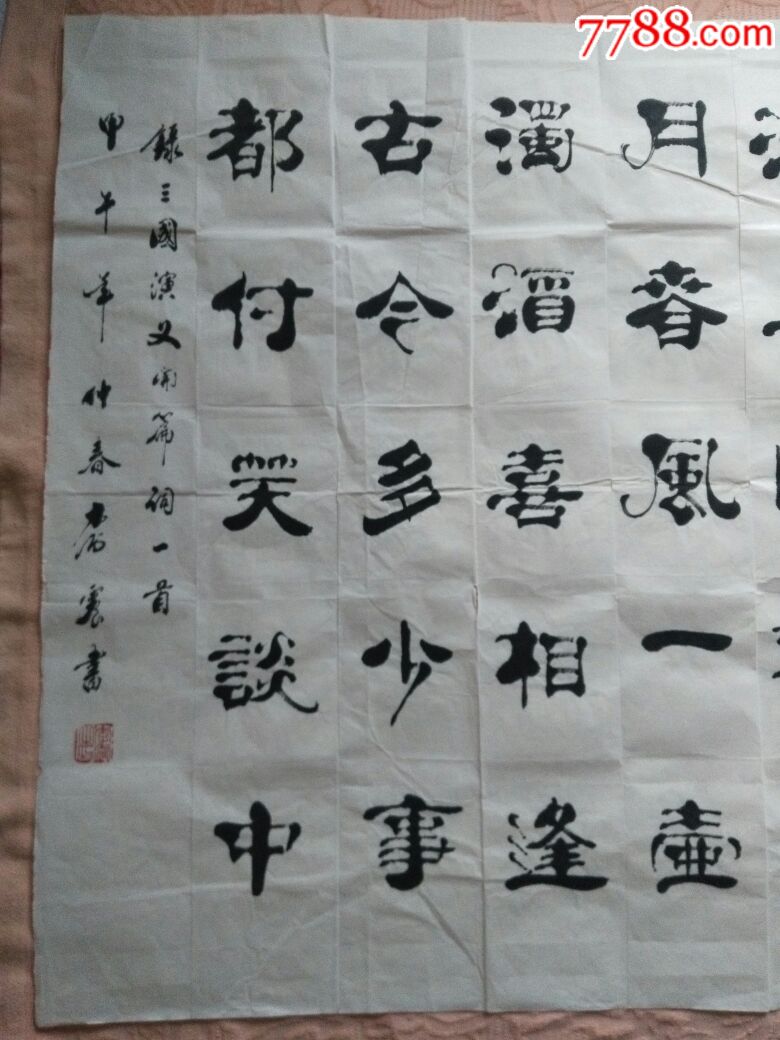 7788.com
月春風一壺
濁酒喜相逢
古今多少事
都付笑談中
錄三國演义開篇詞一首
甲午年仲春 震書